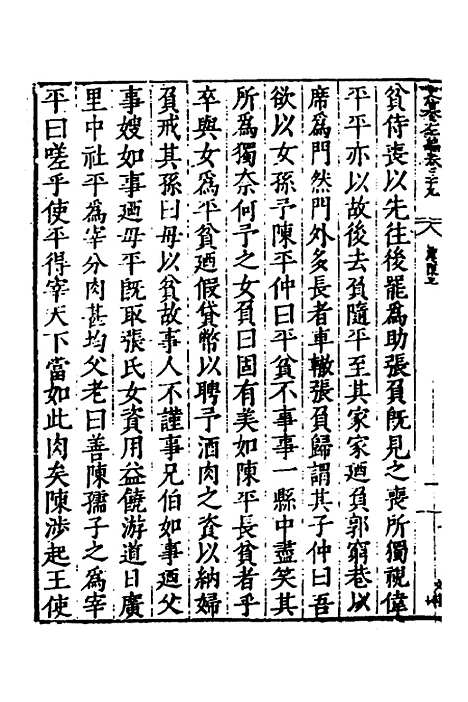 貧侍喪以先往後罷為助張負既見之喪所獨視偉
平平亦以故後去負隨平至其家家廼負郭窮巷以
席為門然門外多長者車轍張負歸謂其子仲曰吾
欲以女孫予陳平仲曰平貧不事事一縣中盡笑其
所為獨奈何予之女負曰固有美如陳平長貧者乎
卒與女為平貧廼假貸幣以聘予酒肉之資以納婦
負戒其孫曰毋以貧故事人不謹事兄伯如事廼父
事嫂如事廼毋平既取張氏女資用益饒游道日廣
里中社平為宰分肉甚均父老曰善陳孺子之為宰
平曰嗟乎使平得宰天下當如此肉矣陳涉起王使